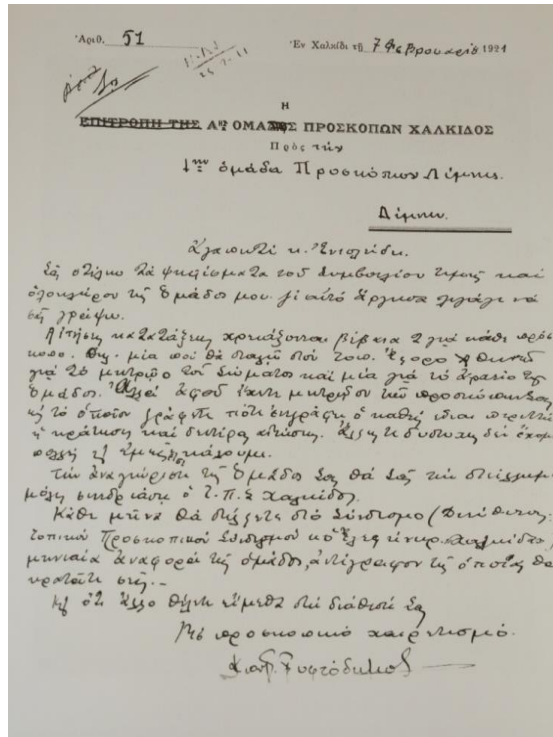 Ἀριθ. 51 Ἐν Χαλκίδι τῇ 7 Φεβρουαρίο 1921
Η
ΕΠΙΤΡΟΠΗ ΤΗΣ Α ΟΜΑΣ ΠΡΟΣΚΟΠΩΝ ΧΑΛΚΙΔΟΣ
Πρὸς τὴν
1ην ὁμάδα Προσκόπων Λίμνης.
Λίμνην.
Ἀγαπητέ κ.
Σᾶς στέλνω τὰ ψηφίσματα τοῦ Συμβουλίου τιμῆς καὶ
ὁλοκλήρου τῆς Ὁμάδος μου. γι αὐτό ἄργησα λιγάκι νὰ
σᾶς γράψω.
Αἰτήσεις κατατάξεως χρειάζονται βέβαια 2 γιά κάθε πρόσ
κοπο. μία ποῦ θὰ σταλῇ στόν
γιά τό μητρῷο τοῦ Σώματος καί μία γιά τό ἀρχεῖο τῆς
Ὁμάδος. ἀφοῦ ἔχετε μητρῷον τῶν προσκόπων σας
εἰς τό ὁποῖον γράφετε πότε ὁ καθείς εἶναι περιττή
ἡ κράτησις καί δευτέρας αἰτήσεως. δυστυχῶς δέν ἔχομε
πολλές
Τήν ἀναγνώρισι τῆς Ὁμάδος σας θά σᾶς τήν στείλωμε
μόλις συνεδριάσῃ ὁ Τ.Π.Σ Χαλκίδος.
Κάθε μῆνα θά στέλνετε στό Σύνδεσμο (Διεύθυνσις:
Τοπικόν Προσκοπικόν Σύνδεσμον Χαλκίδα)
μηνιαία ἀναφορά τῆς ὁμάδος, ἀντίγραφον τῆς ὁποίας θά
κρατᾶτε σεῖς.-
Γι ὅτι ἄλλο θέλετε εἴμεθα στή διάθεσί σας
Μέ προσκοπικό χαιρετισμό.